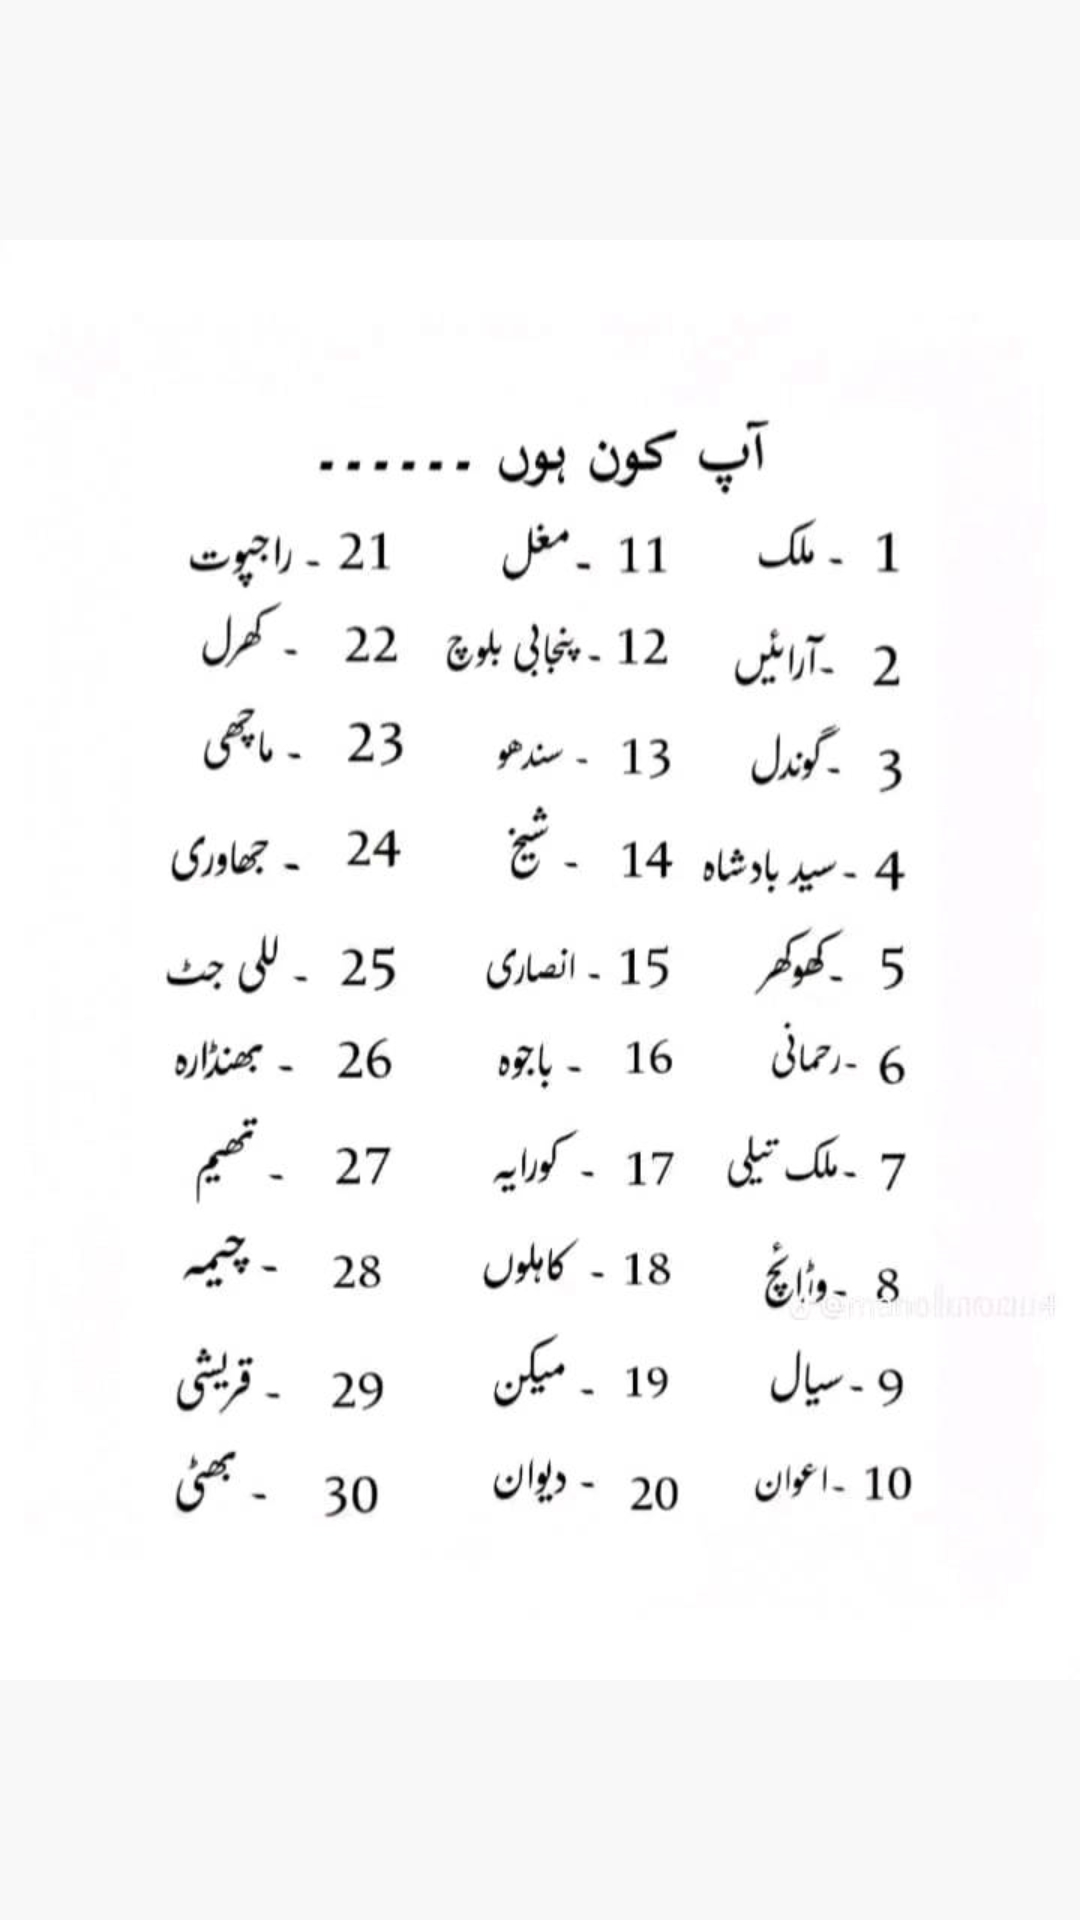 آپ کون ہوں ------
1 ۔ ملک 11 ۔ مغل 21 ۔ راجپوت
2 ۔آرائیں 12 ۔ پنجابی بلوچ 22 ۔ کھرل
3 ۔گوندل 13 ۔ سندھو 23 ۔ ماچھی
4 ۔سید بادشاہ 14 ۔ شیخ 24 ۔ جھاوری
5 ۔کھوکھر 15 ۔ انصاری 25 ۔ للی جٹ
6 ۔رحمانی 16 ۔ باجوہ 26 ۔ بھنڈارہ
7 ۔ملک تیلی 17 ۔ کورایہ 27 ۔ تھیم
8 ۔وڑائچ 18 ۔ کاہلوں 28 ۔ چیمہ
9 ۔سیال 19 ۔ میکن 29 ۔ قریشی
10 ۔اعوان 20 ۔ دیوان 30 ۔ بھٹی